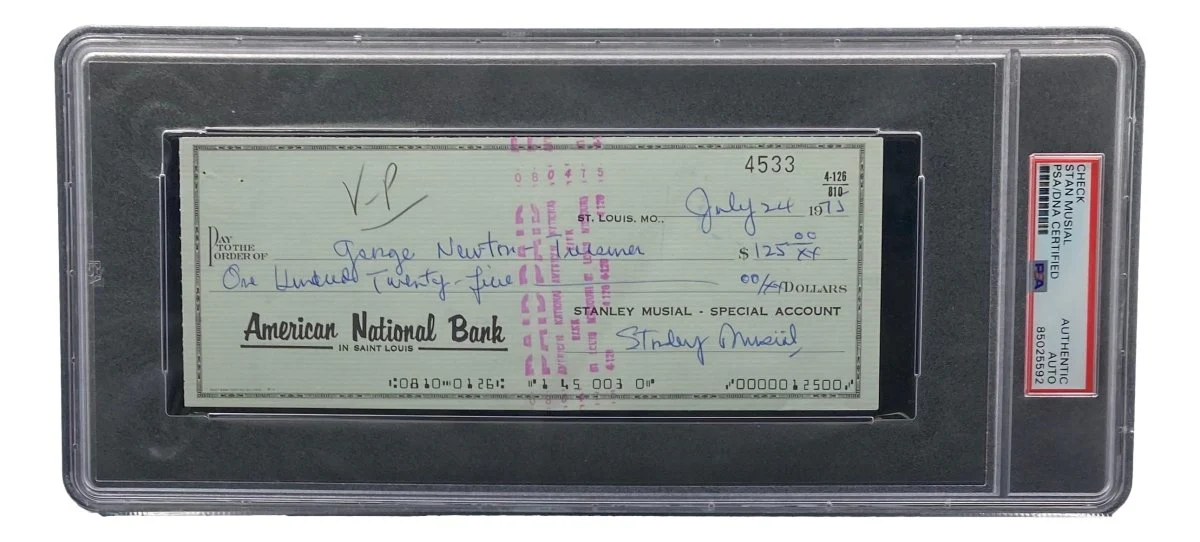 4533
V-P
4-126
810
ST. LOUIS, MO., July 24 1973
PAY TO THE ORDER OF George Newton - Treasurer $ 125 00/xx
One Hundred Twenty-five 00/xx DOLLARS
STANLEY MUSIAL - SPECIAL ACCOUNT
American National Bank
IN SAINT LOUIS
Stanley Musial
⑆0810⑉0126⑆ ⑈1 45 003 0⑈ ⑇0000012500⑇
080473
PAID
CHECK
STAN MUSIAL
PSA/DNA CERTIFIED
PSA
AUTHENTIC
AUTO
85025592